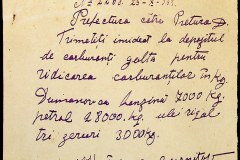 Prefectura către Pretura D.
Trimiteți imediat la depozitul
de carburanți galta pentru
ridicarea carburantilor în kg.
Dumanovca benzină 7000 kg.
petrol 28000 kg. ulei rizal
trei zeruri 3000 kg.